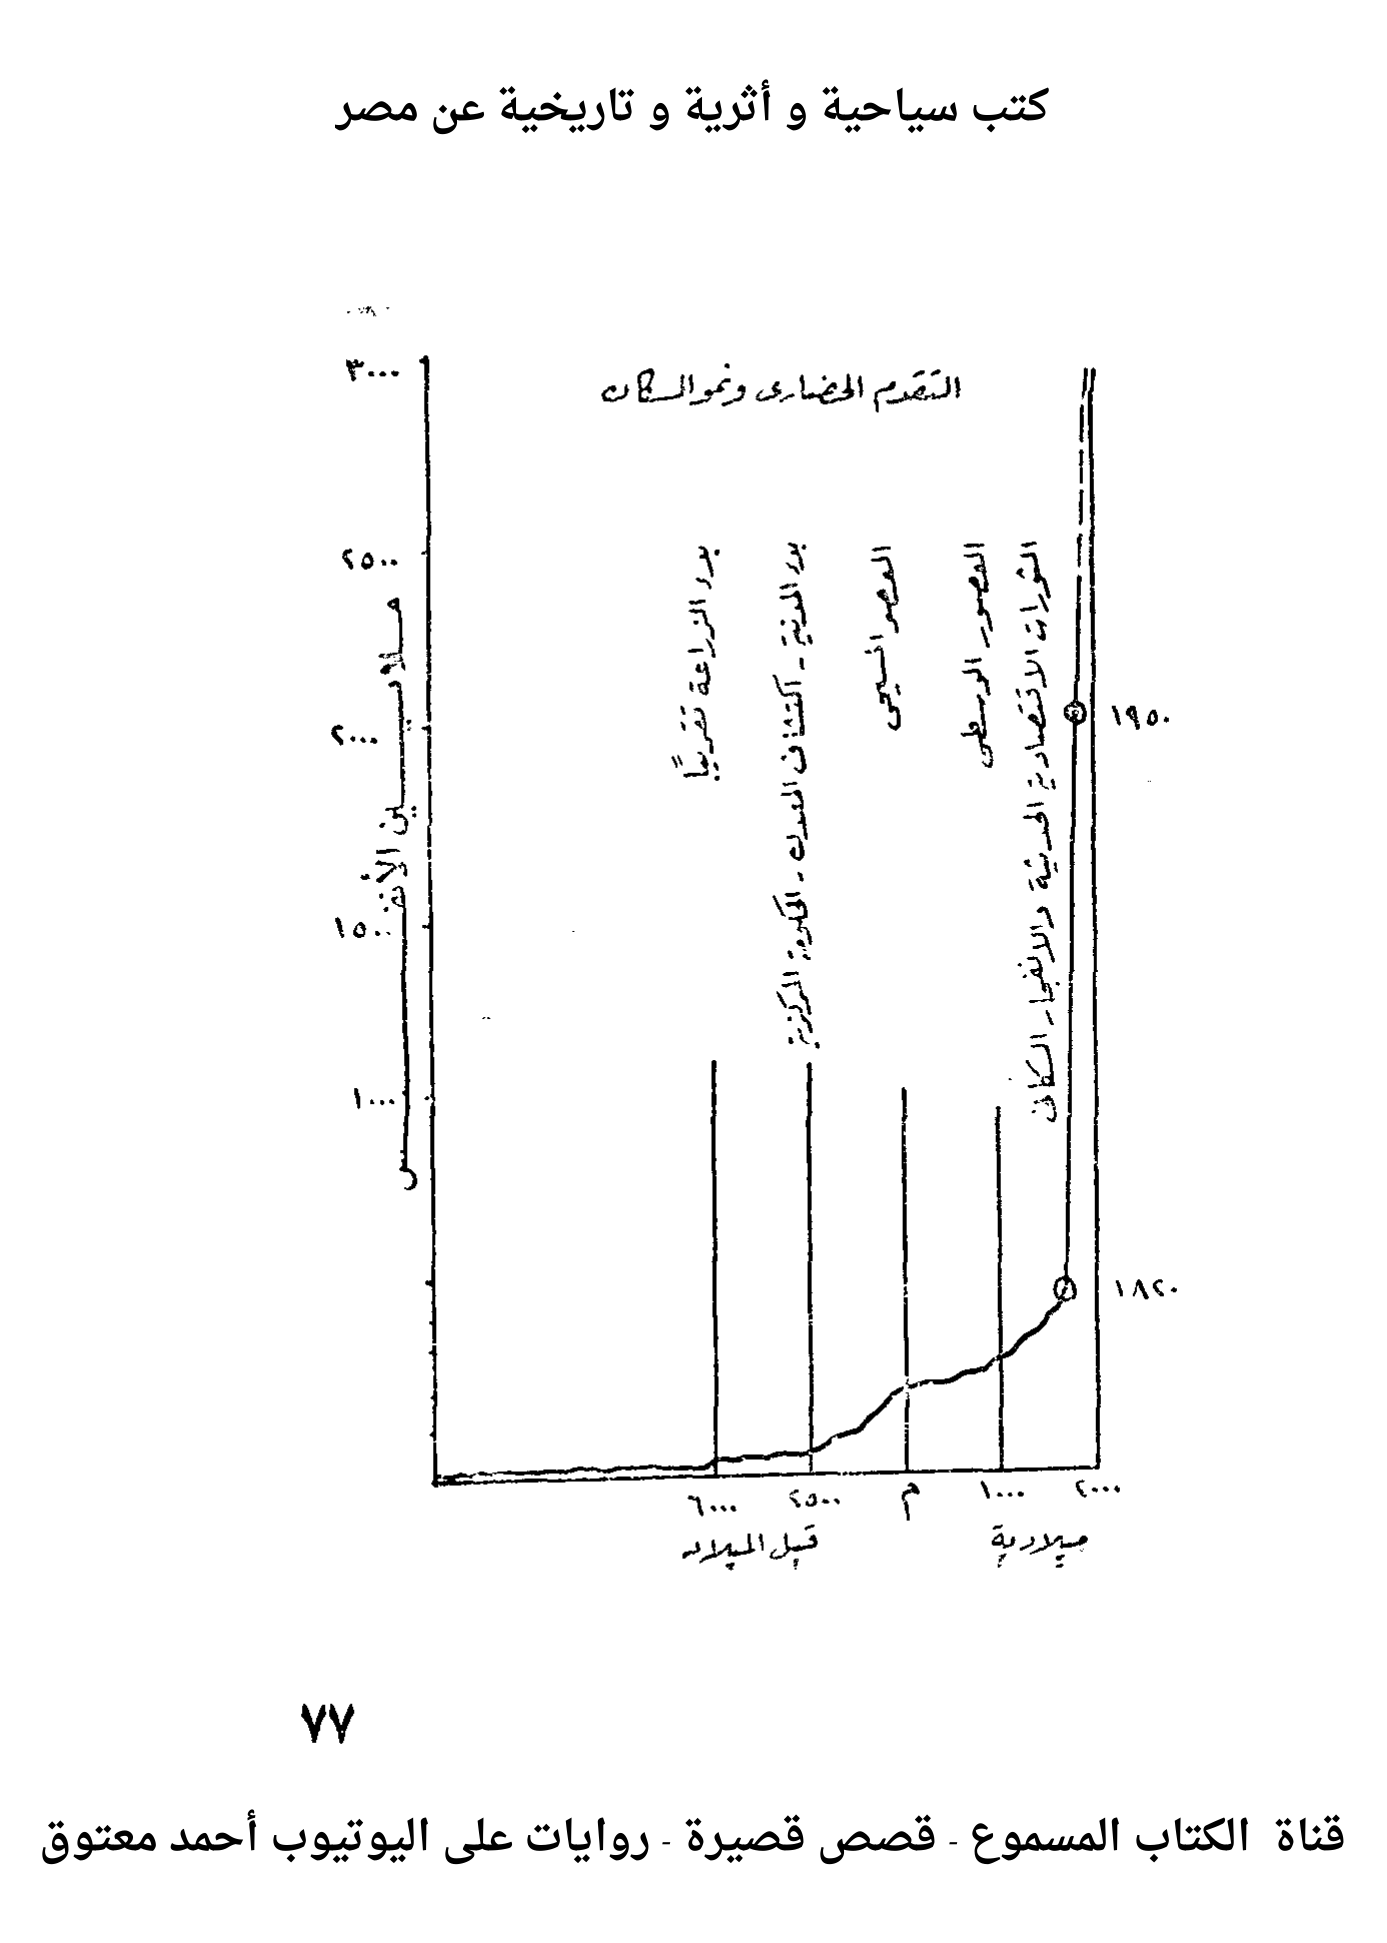 كتب سياحية و أثرية و تاريخية عن مصر
التقدم الحضارى ونمو السكان
٣٠٠٠
٢٥٠٠
٢٠٠٠
١٥٠٠
١٠٠٠
ملايين الأنفس
بدء الزراعة تقريبًا
بدء المدنية - اكتشاف المعدن - الحكومة المركزية
العصر المسيحى
العصور الوسطى
الثورات الاقتصادية الحديثة والانفجار السكانى
١٩٥٠
١٨٢٠
٦٠٠٠
٢٥٠٠
م
١٠٠٠
٢٠٠٠
قبل الميلاد
ميلادية
٧٧
قناة الكتاب المسموع - قصص قصيرة - روايات على اليوتيوب أحمد معتوق